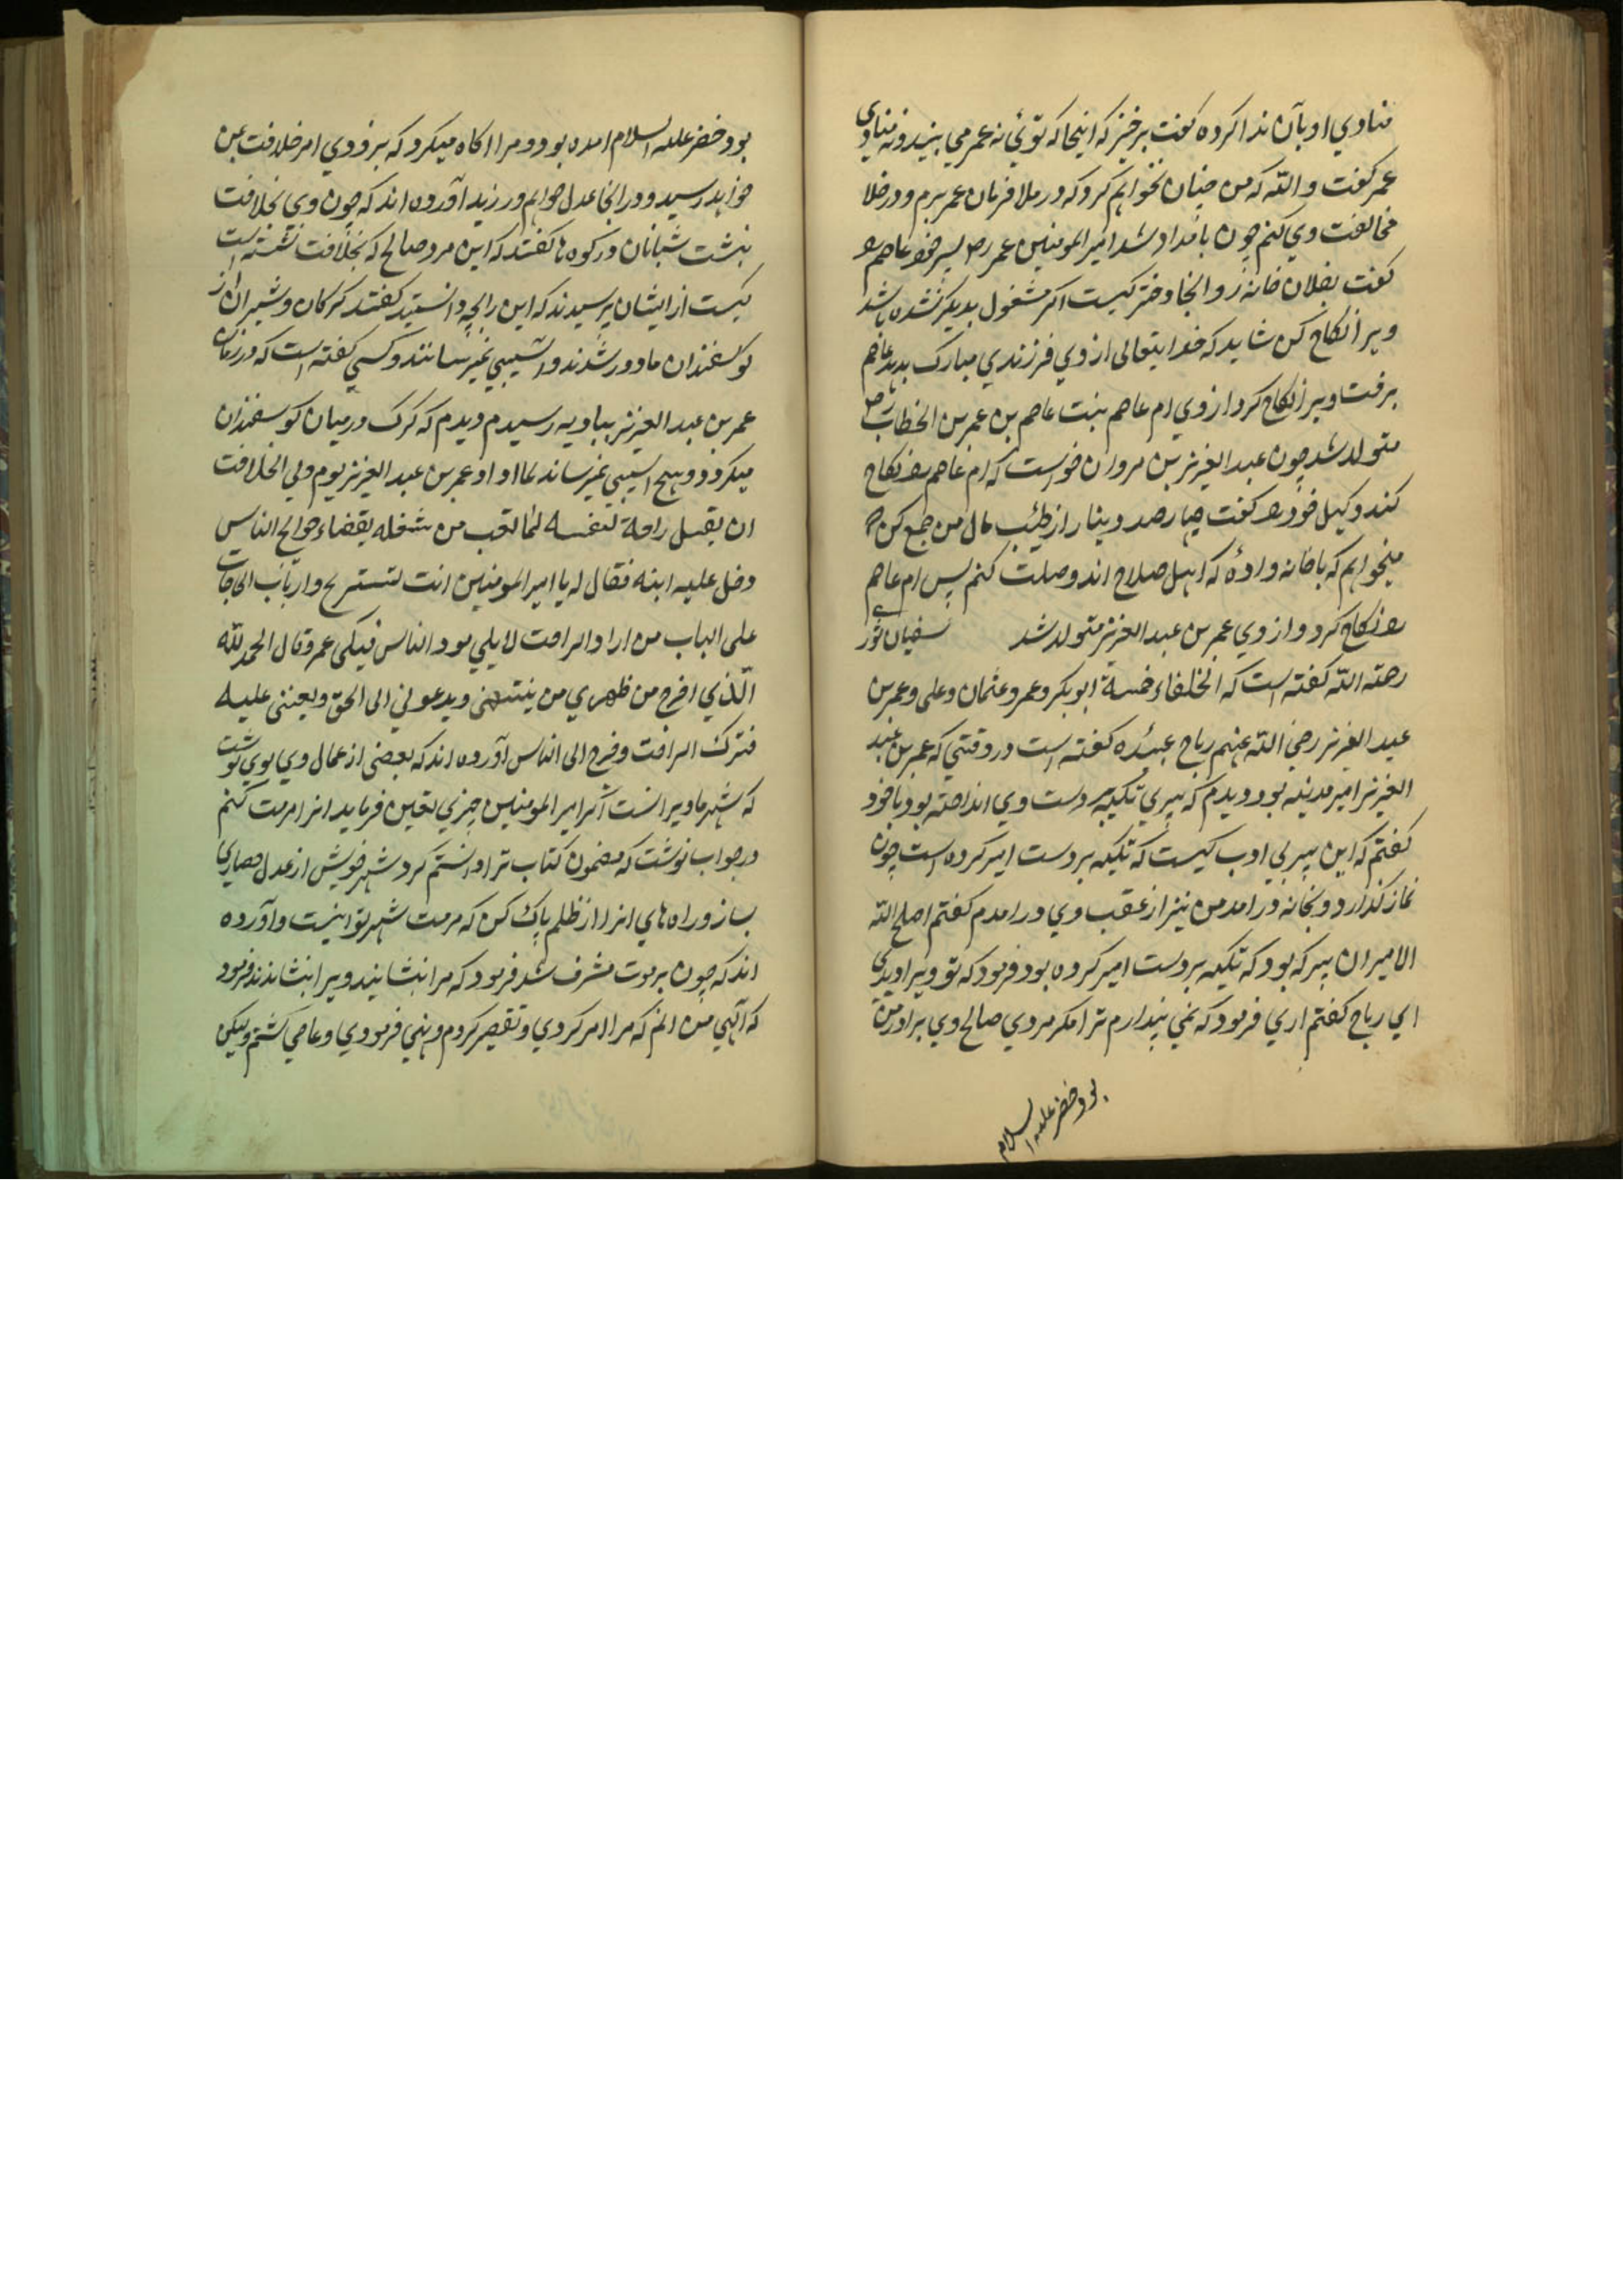 منادي او بآن ندا كرده كفت برخيز كه اينجا كه توئي نه عمر مي بيند و نه منادي
عمر كفت والله كه من چنان نخواهم كرد كه در ملا فرمان عمر برم و در خلا
مخالفت وي كنم چون بامداد شد امير المومنين عمر رض پسر خود عاصم را
كفت بفلان خانه رو انجا دختر كيست اكر مشغول بديكر نشده باشد
ويرا نكاح كن شايد كه خدايتعالى از وي فرزندي مبارك بدهد عاصم
برفت ويرا نكاح كرد از وي ام عاصم بنت عاصم بن عمر بن الخطاب رض
متولد شد چون عبد العزيز بن مروان خواست كه ام عاصم را نكاح
كند وكيل خود را كفت چهارصد دينار از طيب مال من جمع كن كه
ميخواهم كه با خانه وادهٔ كه اهل صلاح اند وصلت كنم پس ام عاصم
را نكاح كرد و از وي عمر بن عبد العزيز متولد شد سفيان ثوري
رحمته الله كفته است كه الخلفاء خمسة ابوبكر و عمر و عثمان و على و عمر بن
عبد العزيز رضي الله عنهم رباح عبيده كفته است در وقتي كه عمر بن عبد
العزيز امير مدينه بود ديدم كه پيري تكيه بردست وي انداخته بود با خود
كفتم كه اين پير بي ادب كيست كه تكيه بردست امير كرده است چون
نماز كذارد و بخانه در امد من نيز از عقب وي در امدم كفتم اصلح الله
الامير ان پير كه بود كه تكيه بردست امير كرده بود فرمود كه تو ويرا ديدي
اي رباح كفتم اري فرمود كه نمي پندارم ترا مكر مردي صالح وي برادر من
بود خضر عليه السلام
بود خضر عليه السلام امده بود و مرا اكاه ميكرد كه بزودي امر خلافت بمن
خواهد رسيد و در انجا عدل خواهم ورزيد آورده اند كه چون وي بخلافت
بنشست شبانان در كوه ها كفتند كه اين مرد صالح كه بخلافت نشسته است
كيست از ايشان پرسيدند كه اين را چه دانستيد كفتند كركان و شيران از
كوسفندان ما دور شدند و اسيبي نميرسانند و كسي كفته است كه در زمان
عمر بن عبد العزيز بباديه رسيدم ديدم كه كرك در ميان كوسفندان
ميكردد و هيچ اسيبي نميرساند عمر بن عبد العزيز يوم ولي الخلافت
ان يقبل راحة لنفسه لما تعب من شغله بقضاء حوائج الناس
دخل عليه ابنه فقال له يا امير المومنين انت تستريح و ارباب الحاجات
على الباب من اراد الراحت لا يلي امور الناس فبكى عمر و قال الحمد لله
الذي اخرج من ظهري من ينبهني و يدعوني الى الحق و يعينني عليه
فترك الراحت و خرج الى الناس آورده اند كه بعضى از عمال وي بوي نوشت
كه شهر ما ويرانست اكر امير المومنين چيزي تعين فرمايد انرا مرمت كنم
در جواب نوشت كه مضمون كتاب ترا دانستم كرد شهر خويش از عدل حصاري
بساز و راه هاي انرا از ظلم پاك كن كه مرمت شهر تو اينست و آورده
اند كه چون بر موت مشرف شد فرمود كه مرا بنشانيد ويرا بنشاندند فرمود
كه الهي من انم كه مرا امر كردي و تقصير كردم و نهي فرمودي و عاصي كشتم وليكن